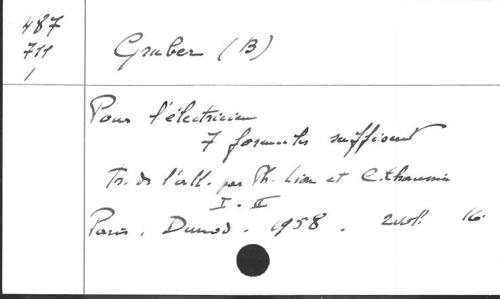 487
711
1
Gruber (B)
Pour l'électricien
7 formules suffisent
Tr. de l'all. par Ph. Lion et C. Chaumin
I - II
Paris. Dunod. 1958. 2 vol. 16